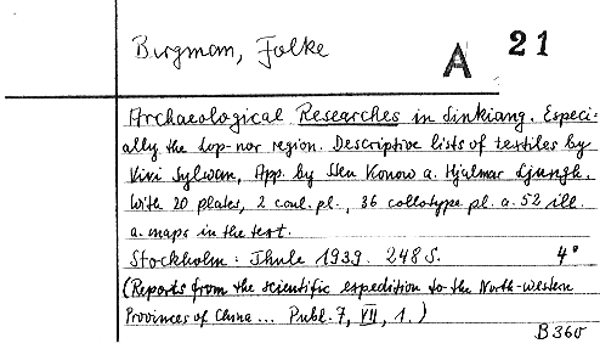 Bergman, Folke
A 21
Archaeological Researches in Sinkiang. Especi-
ally the Lop-nor region. Descriptive lists of textiles by
Vivi Sylwan, App. by Sten Konow a. Hjalmar Ljungh.
With 20 plates, 2 coul. pl., 36 collotype pl. a. 52 ill.
a. maps in the text.
Stockholm: Thule 1939. 248 S. 4°
(Reports from the scientific expedition to the North-Western
Provinces of China ... Publ. 7, VII, 1.)
B 360